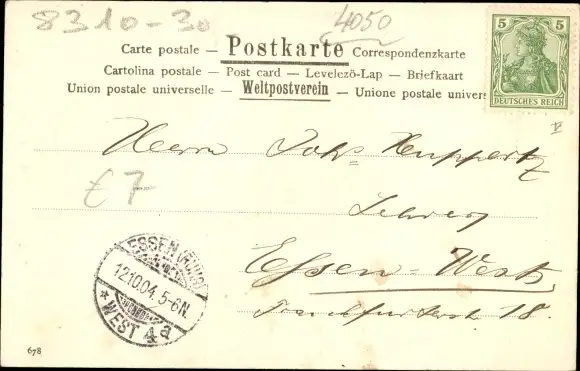 8310-30
4050
Carte postale — Postkarte Correspondenzkarte
Cartolina postale — Post card — Levelezö-Lap — Briefkaart
Union postale universelle — Weltpostverein — Unione postale univers
5 5
DEUTSCHES REICH
Herrn Joh. Huppertz
€7
Essen-West
Frankfurterstr 18.
ESSEN (RUHR)
12.10.04. 5-6N.
* WEST 4a
678